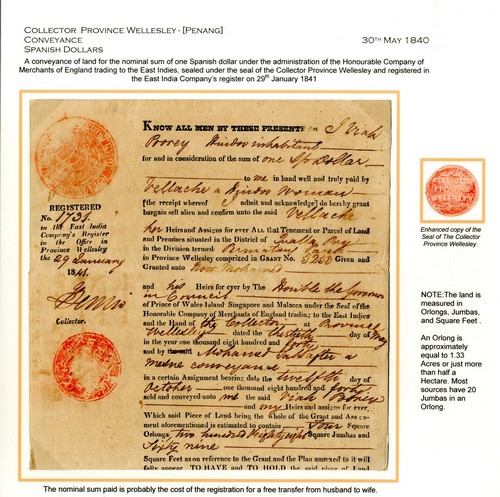 COLLECTOR PROVINCE WELLESLEY - [PENANG]
CONVEYANCE
SPANISH DOLLARS
30TH MAY 1840
A conveyance of land for the nominal sum of one Spanish dollar under the administration of the Honourable Company of
Merchants of England trading to the East Indies, sealed under the seal of the Collector Province Wellesley and registered in
the East India Company's register on 29th January 1841
KNOW ALL MEN BY THESE PRESENTS I Viah
Hindoo inhabitant
for and in consideration of the sum of one Sp Dollar
to me in hand well and truly paid by
Vellache a Hindoo Woman
[the receipt whereof I admit and acknowledge] do hereby grant
bargain sell alien and confirm unto the said Vellache
her Heirs and Assigns for ever ALL that Tenement or Parcel of Land
and Premises situated in the District of
in the Division termed
in Province Wellesley comprized in GRANT No. 5268 Given and
Granted unto Mohamed
and his Heirs for ever by The Honble the Governor
in Council
of Prince of Wales Island Singapore and Malacca under the Seal of the
Honorable Company of Merchants of England trading to the East Indies
and the Hand of the Collector of Province
Wellesley dated the thirtieth day of May
in the year one thousand eight hundred and forty
and by Mohamed after a
mesne conveyance
in a certain Assignment bearing date the twelfth day of
October one thousand eight hundred and forty
sold and conveyed unto me the said Viah
and my Heirs and assigns for ever,
Which said Piece of Land being the whole of the Grant and Assessment
aforementioned is estimated to contain Four Square
Orlongs, two hundred Eighty eight Square Jumbas and
Sixty nine
Square Feet as on reference to the Grant and the Plan annexed to it will
fully appear TO HAVE and TO HOLD the said piece of Land
REGISTERED
No. 1731.
in the East India
Company's Register
in the Office in
Province Wellesley
the 29 January
1841.
Collector.
COLLECTOR
PROVINCE
WELLESLEY
Enhanced copy of the
Seal of The Collector
Province Wellesley.
NOTE:The land is
measured in
Orlongs, Jumbas,
and Square Feet .
An Orlong is
approximately
equal to 1.33
Acres or just more
than half a
Hectare. Most
sources have 20
Jumbas in an
Orlong.
The nominal sum paid is probably the cost of the registration for a free transfer from husband to wife.